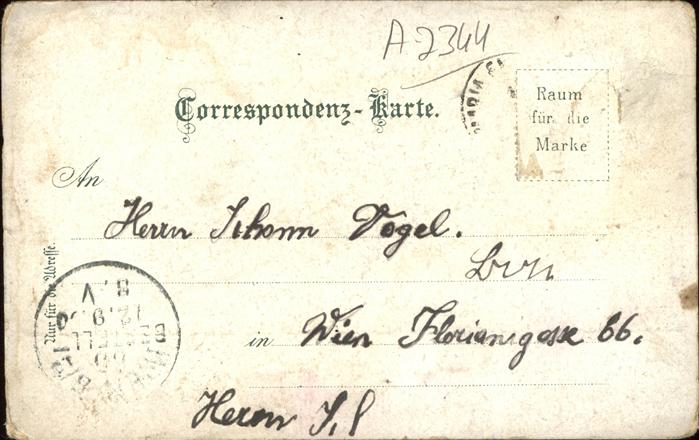 A 2344
MARIA
Correspondenz-Karte.
Raum
für die
Marke
An
Herrn Johann Vogel.
Nur für die Adresse.
in Wien Floriangasse 66.
BESTELLT
Herrn J